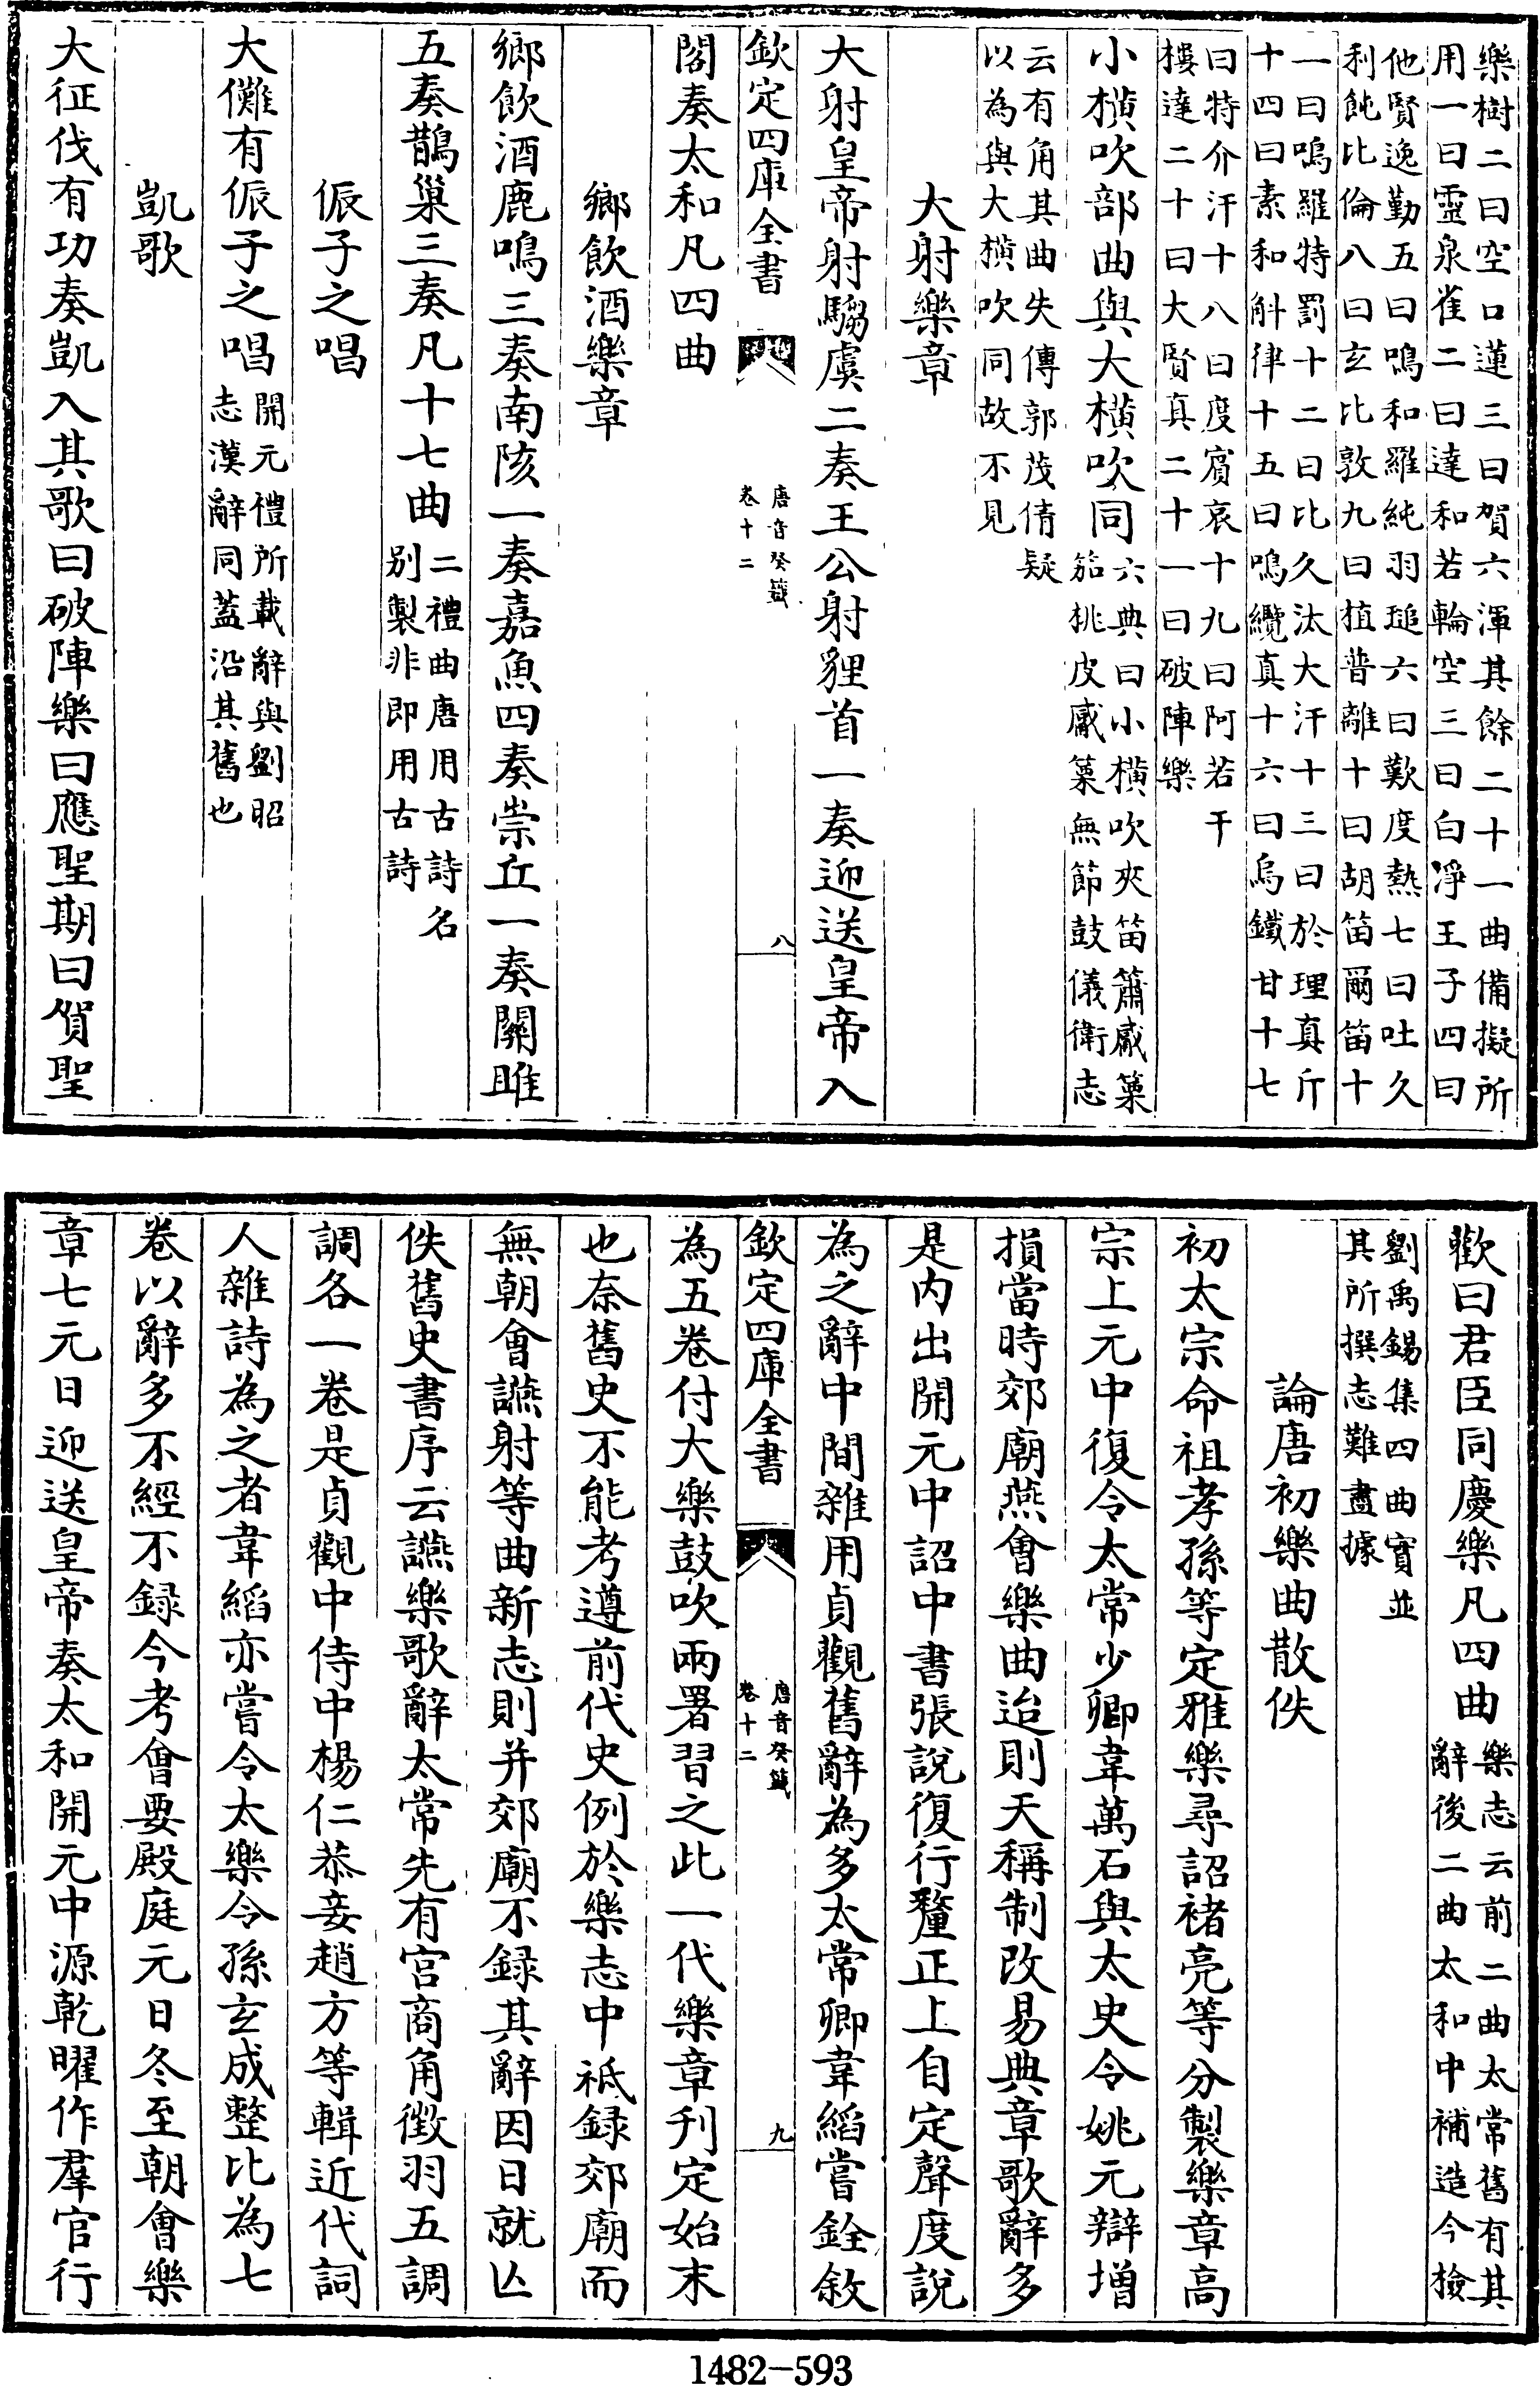 樂樹二曰空口蓮三曰賀六渾其餘二十一曲備擬所
用一曰靈泉雀二曰達和若輪空三曰白淨王子四曰
他賢逸勤五曰鳴和羅純羽瑝六曰歎度熱七曰吐久
利飩比倫八曰玄比敦九曰植普離十曰胡笛爾笛十
一曰鳴羅特罰十二曰比久汰大汗十三曰於理真斤
十四曰素和斛律十五曰鳴纜真十六曰烏鐵甘十七
曰特介汗十八曰度賓哀十九曰阿若干
樓達二十曰大賢真二十一曰破陣樂
小橫吹部曲與大橫吹同
六典曰小橫吹夾笛簫觱篥
笳桃皮觱篥無節鼓儀衛志
云有角其曲失傳郭茂倩疑
以為與大橫吹同故不見
大射樂章
大射皇帝射騶虞二奏王公射貍首一奏迎送皇帝入
欽定四庫全書
唐音癸籤
卷十二
八
閣奏太和凡四曲
鄉飲酒樂章
鄉飲酒鹿鳴三奏南陔一奏嘉魚四奏崇丘一奏關雎
五奏鵲巢三奏凡十七曲
二禮曲唐用古詩名
別製非即用古詩
侲子之唱
大儺有侲子之唱
開元禮所載辭與劉昭
志漢辭同蓋沿其舊也
凱歌
大征伐有功奏凱入其歌曰破陣樂曰應聖期曰賀聖
歡曰君臣同慶樂凡四曲
樂志云前二曲太常舊有其
辭後二曲太和中補造今檢
劉禹錫集四曲實並
其所撰志難盡據
論唐初樂曲散佚
初太宗命祖孝孫等定雅樂尋詔褚亮等分製樂章高
宗上元中復令太常少卿韋萬石與太史令姚元辯增
損當時郊廟燕會樂曲迨則天稱制改易典章歌辭多
是內出開元中詔中書張說復行釐正上自定聲度說
為之辭中間雜用貞觀舊辭為多太常卿韋縚嘗銓敘
欽定四庫全書
唐音癸籤
卷十二
九
為五卷付大樂鼓吹兩署習之此一代樂章刊定始末
也奈舊史不能考遵前代史例於樂志中祗錄郊廟而
無朝會讌射等曲新志則并郊廟不錄其辭因日就亾
佚舊史書序云讌樂歌辭太常先有宮商角徵羽五調
調各一卷是貞觀中侍中楊仁恭妾趙方等輯近代詞
人雜詩為之者韋縚亦嘗令太樂令孫玄成整比為七
卷以辭多不經不錄今考會要殿庭元日冬至朝會樂
章七元日迎送皇帝奏太和開元中源乾曜作羣官行
1482-593